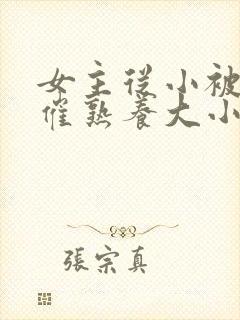 女主從小被
催熟養大小
張宗真